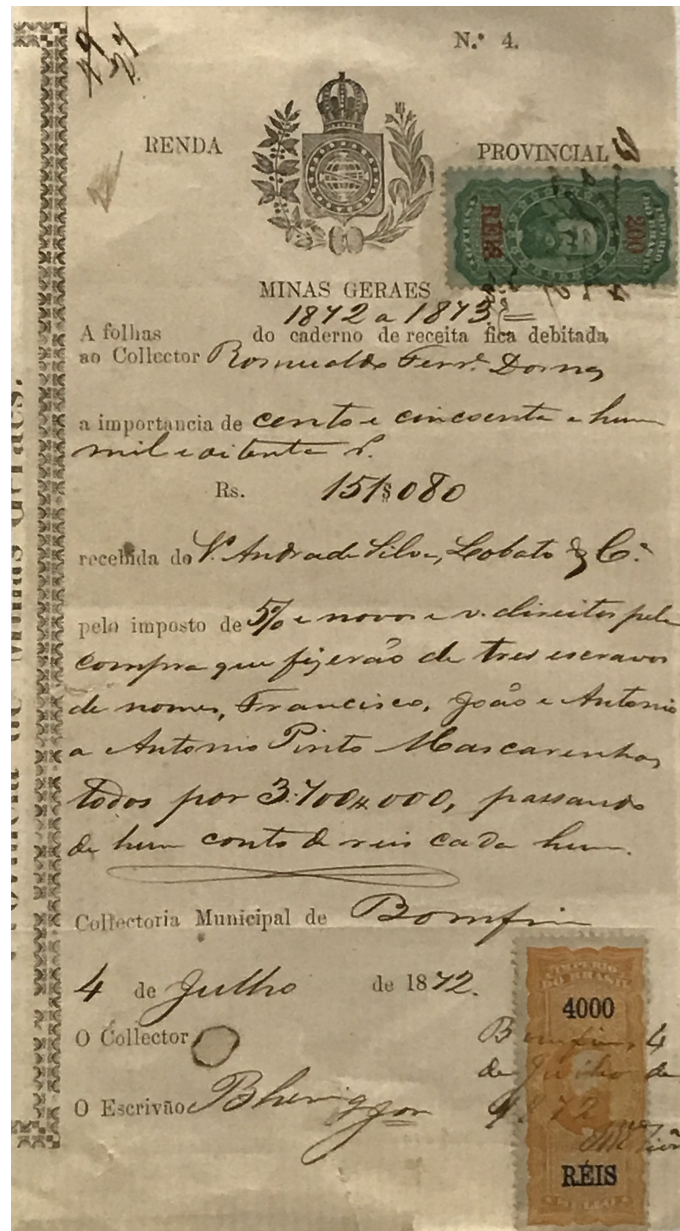 49
N.º 4.
RENDA PROVINCIAL
IMPERIO DO BRASIL
200
REIS
MINAS GERAES
1872 a 1873
A folhas do caderno de receita fica debitada
ao Collector Romualdo Ferr.ª Dornas
a importancia de cento e cincoenta e hum
mil e oitenta r.
Rs. 151$080
recebida de V. Andrade Silva, Lobato & C.ª
pelo imposto de 5% e novos e v. direitos pela
compra que fizerão de tres escravos
de nomes, Francisco, João e Antonio
a Antonio Pinto Mascarenhas,
todos por 3:700#000, passando
de hum conto de reis cada hum.
Collectoria Municipal de Bomfim
4 de Julho de 1872.
O Collector
O Escrivão
IMPERIO DO BRASIL
4000
RÉIS
Bomfim, 4
de Julho de
1872